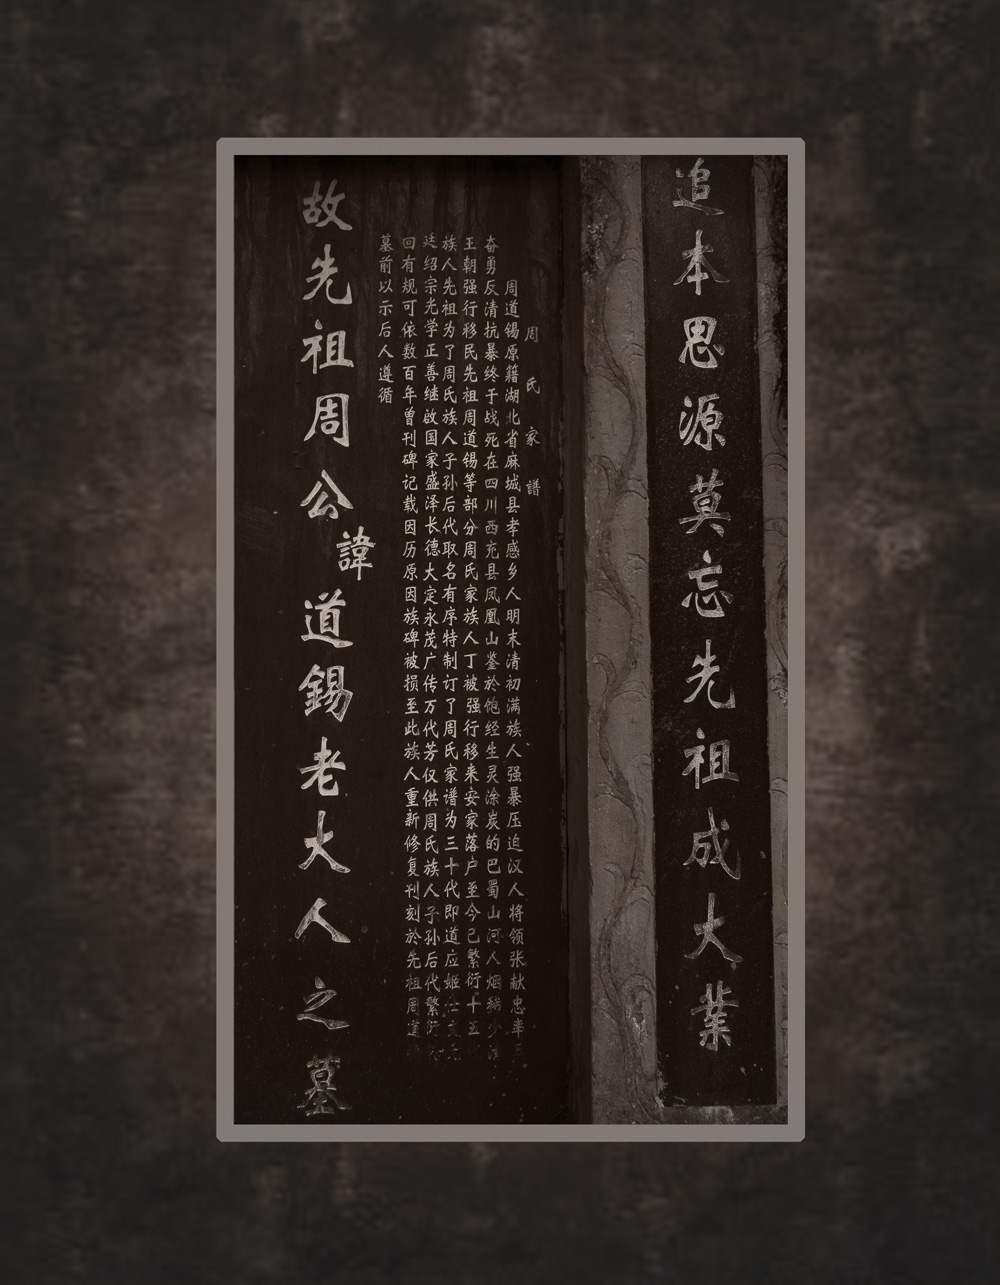 追本思源莫忘先祖成大業
周氏家譜
周道锡原籍湖北省麻城县孝感乡人明末清初满族人强暴压迫汉人将领张献忠率
奋勇反清抗暴终于战死在四川西充县凤凰山鉴於饱经生灵涂炭的巴蜀山河人烟稀少清
王朝强行移民先祖周道锡等部分周氏家族人丁被强行移来安家落户至今已繁衍十五
族人先祖为了周氏族人子孙后代取名有序特制订了周氏家谱为三十代即道应姬仕
廷绍宗光学正善继啟国家盛泽长德大定永茂广传万代芳仅供周氏族人子孙后代繁衍
回有规可依数百年曾刊碑记载因历原因族碑被损至此族人重新修复刊刻於先祖周道
墓前以示后人遵循
故先祖周公諱道錫老大人之墓